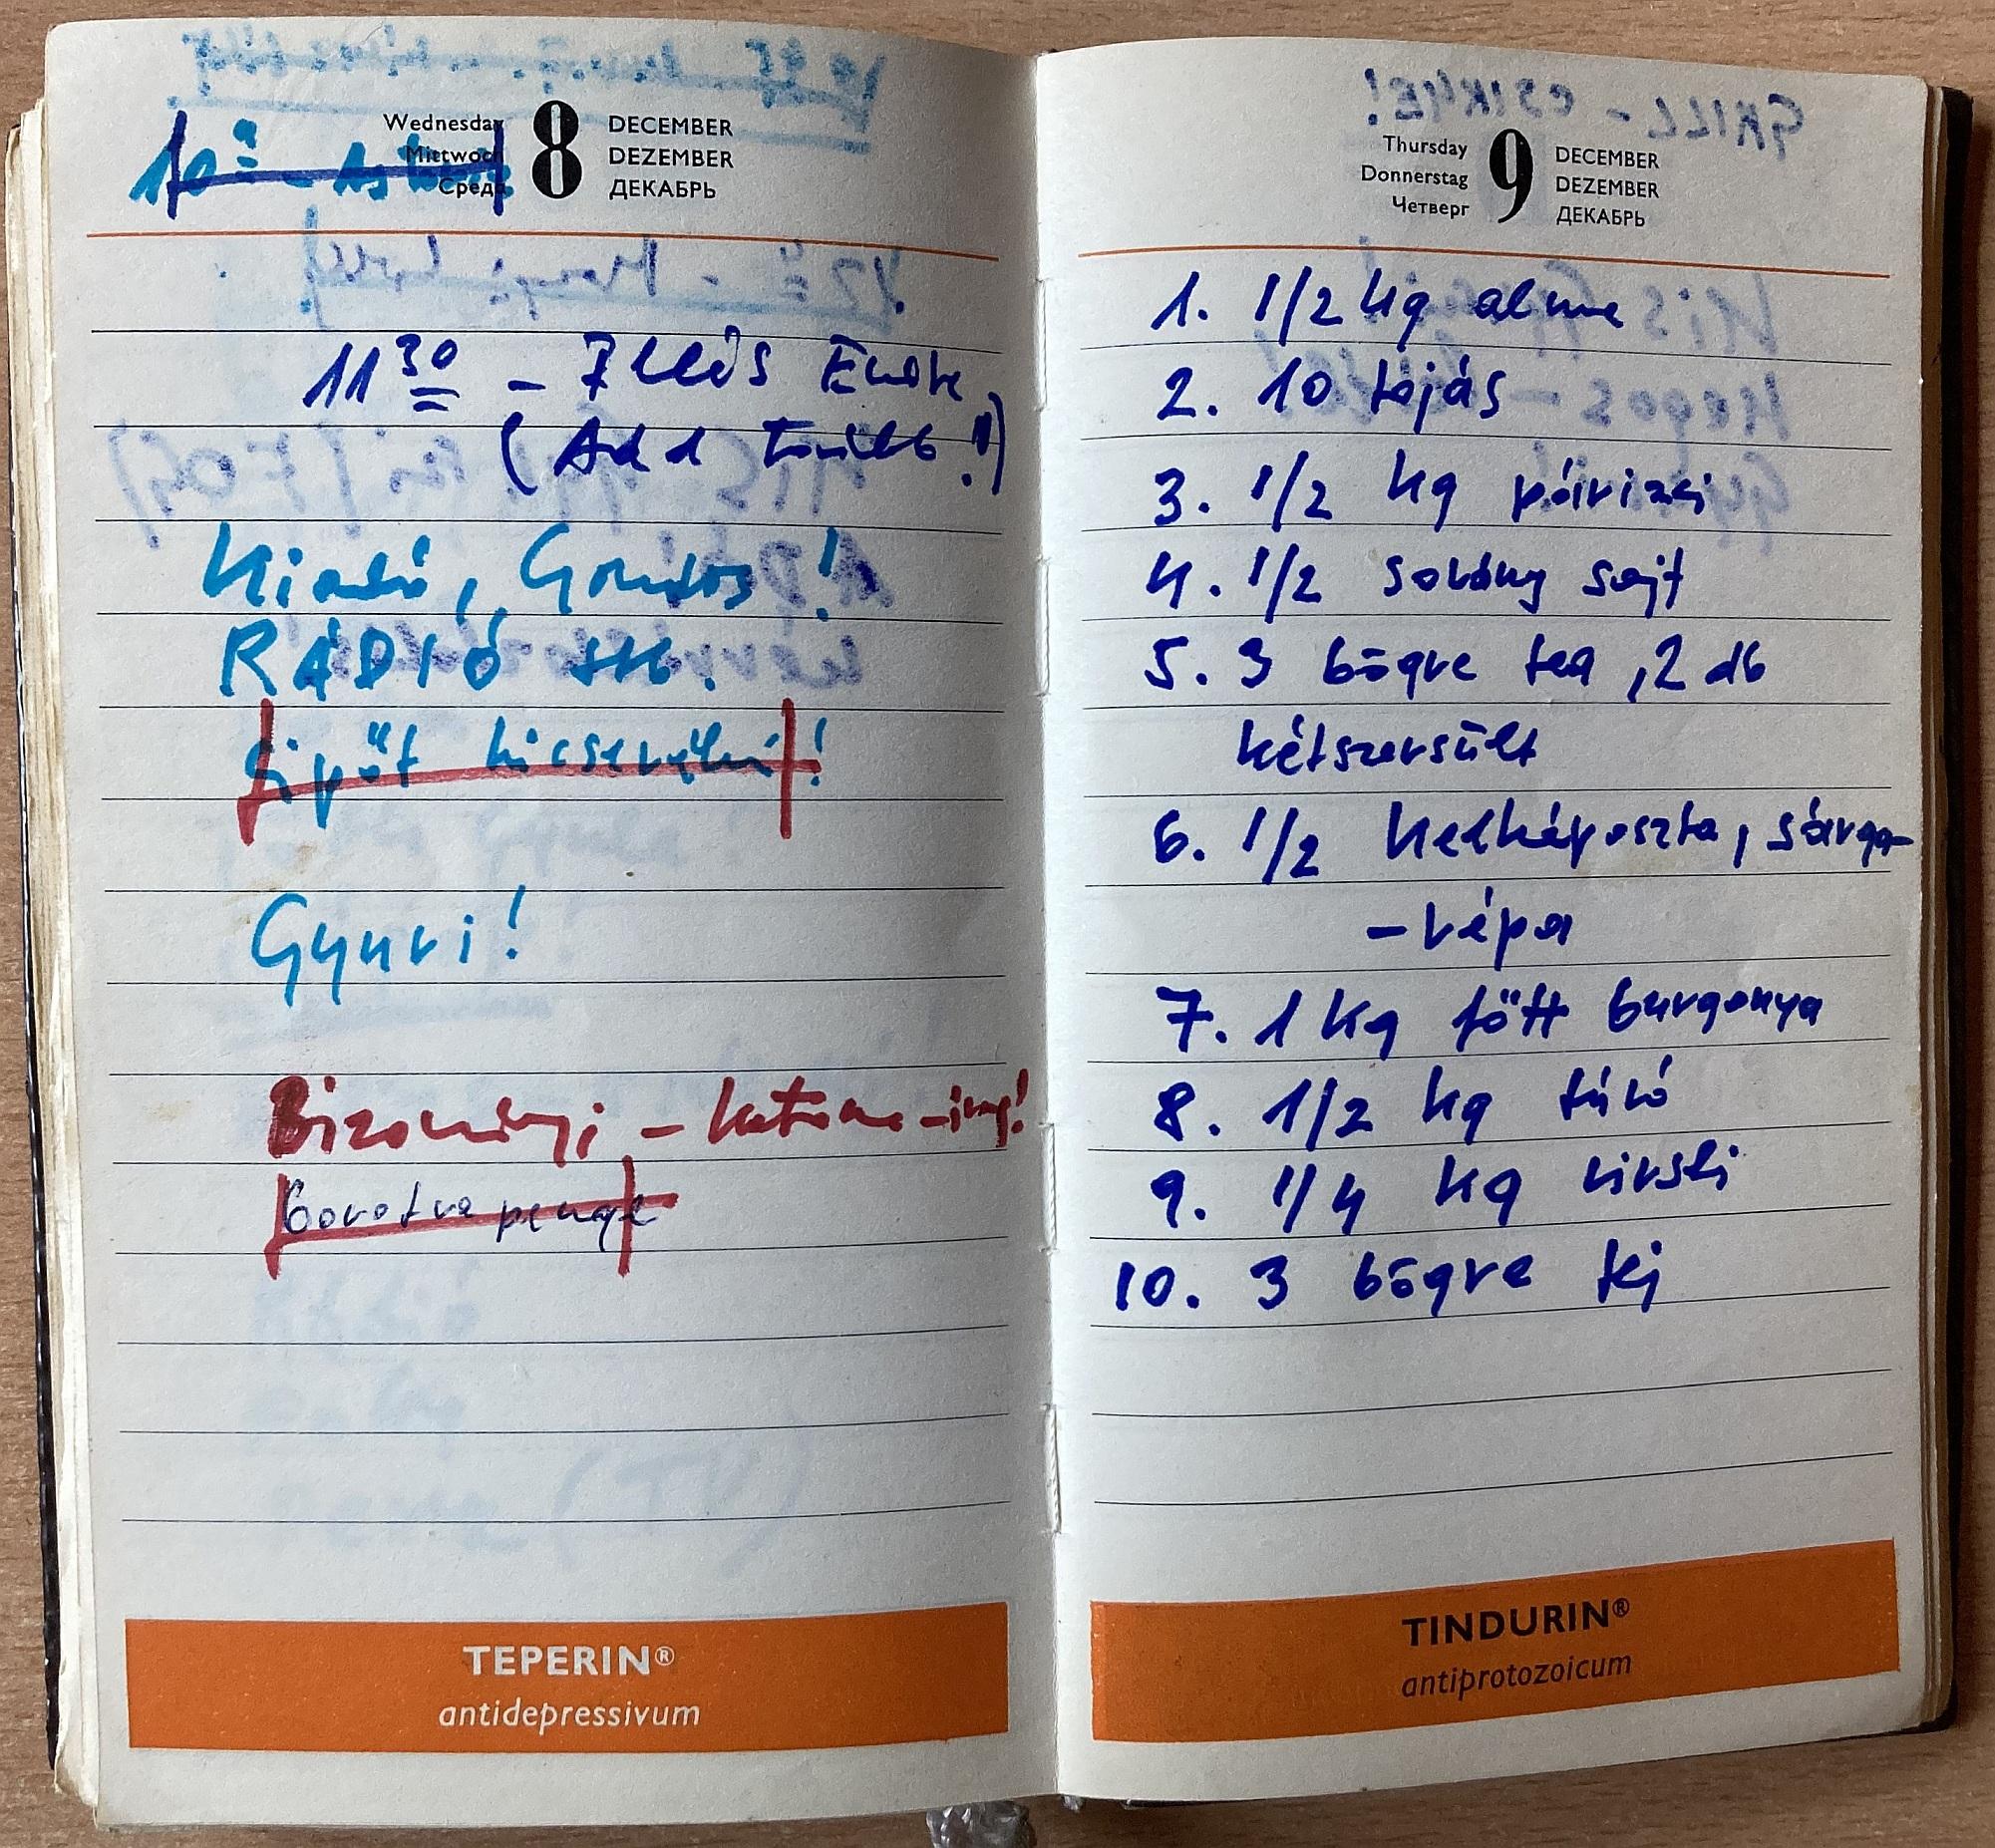 Wednesday
Mittwoch
Среда
8
DECEMBER
DEZEMBER
ДЕКАБРЬ
11 30 - Illés Endre
(Add tovább!!)
Kiadó, Gondos!
RÁDIÓ stb.
Cipőt kicserélni!
Gyuri!
Bizományi - katona-ing!
borotva penge
TEPERIN®
antidepressivum
Thursday
Donnerstag
Четверг
9
DECEMBER
DEZEMBER
ДЕКАБРЬ
1. 1/2 kg alma
2. 10 tojás
3. 1/2 kg párizsi
4. 1/2 sovány sajt
5. 3 bögre tea, 2 db
kétszersült
6. 1/2 kelkáposzta, sárga-
-répa
7. 1 kg főtt burgonya
8. 1/2 kg túró
9. 1/4 kg virsli
10. 3 bögre tej
TINDURIN®
antiprotozoicum